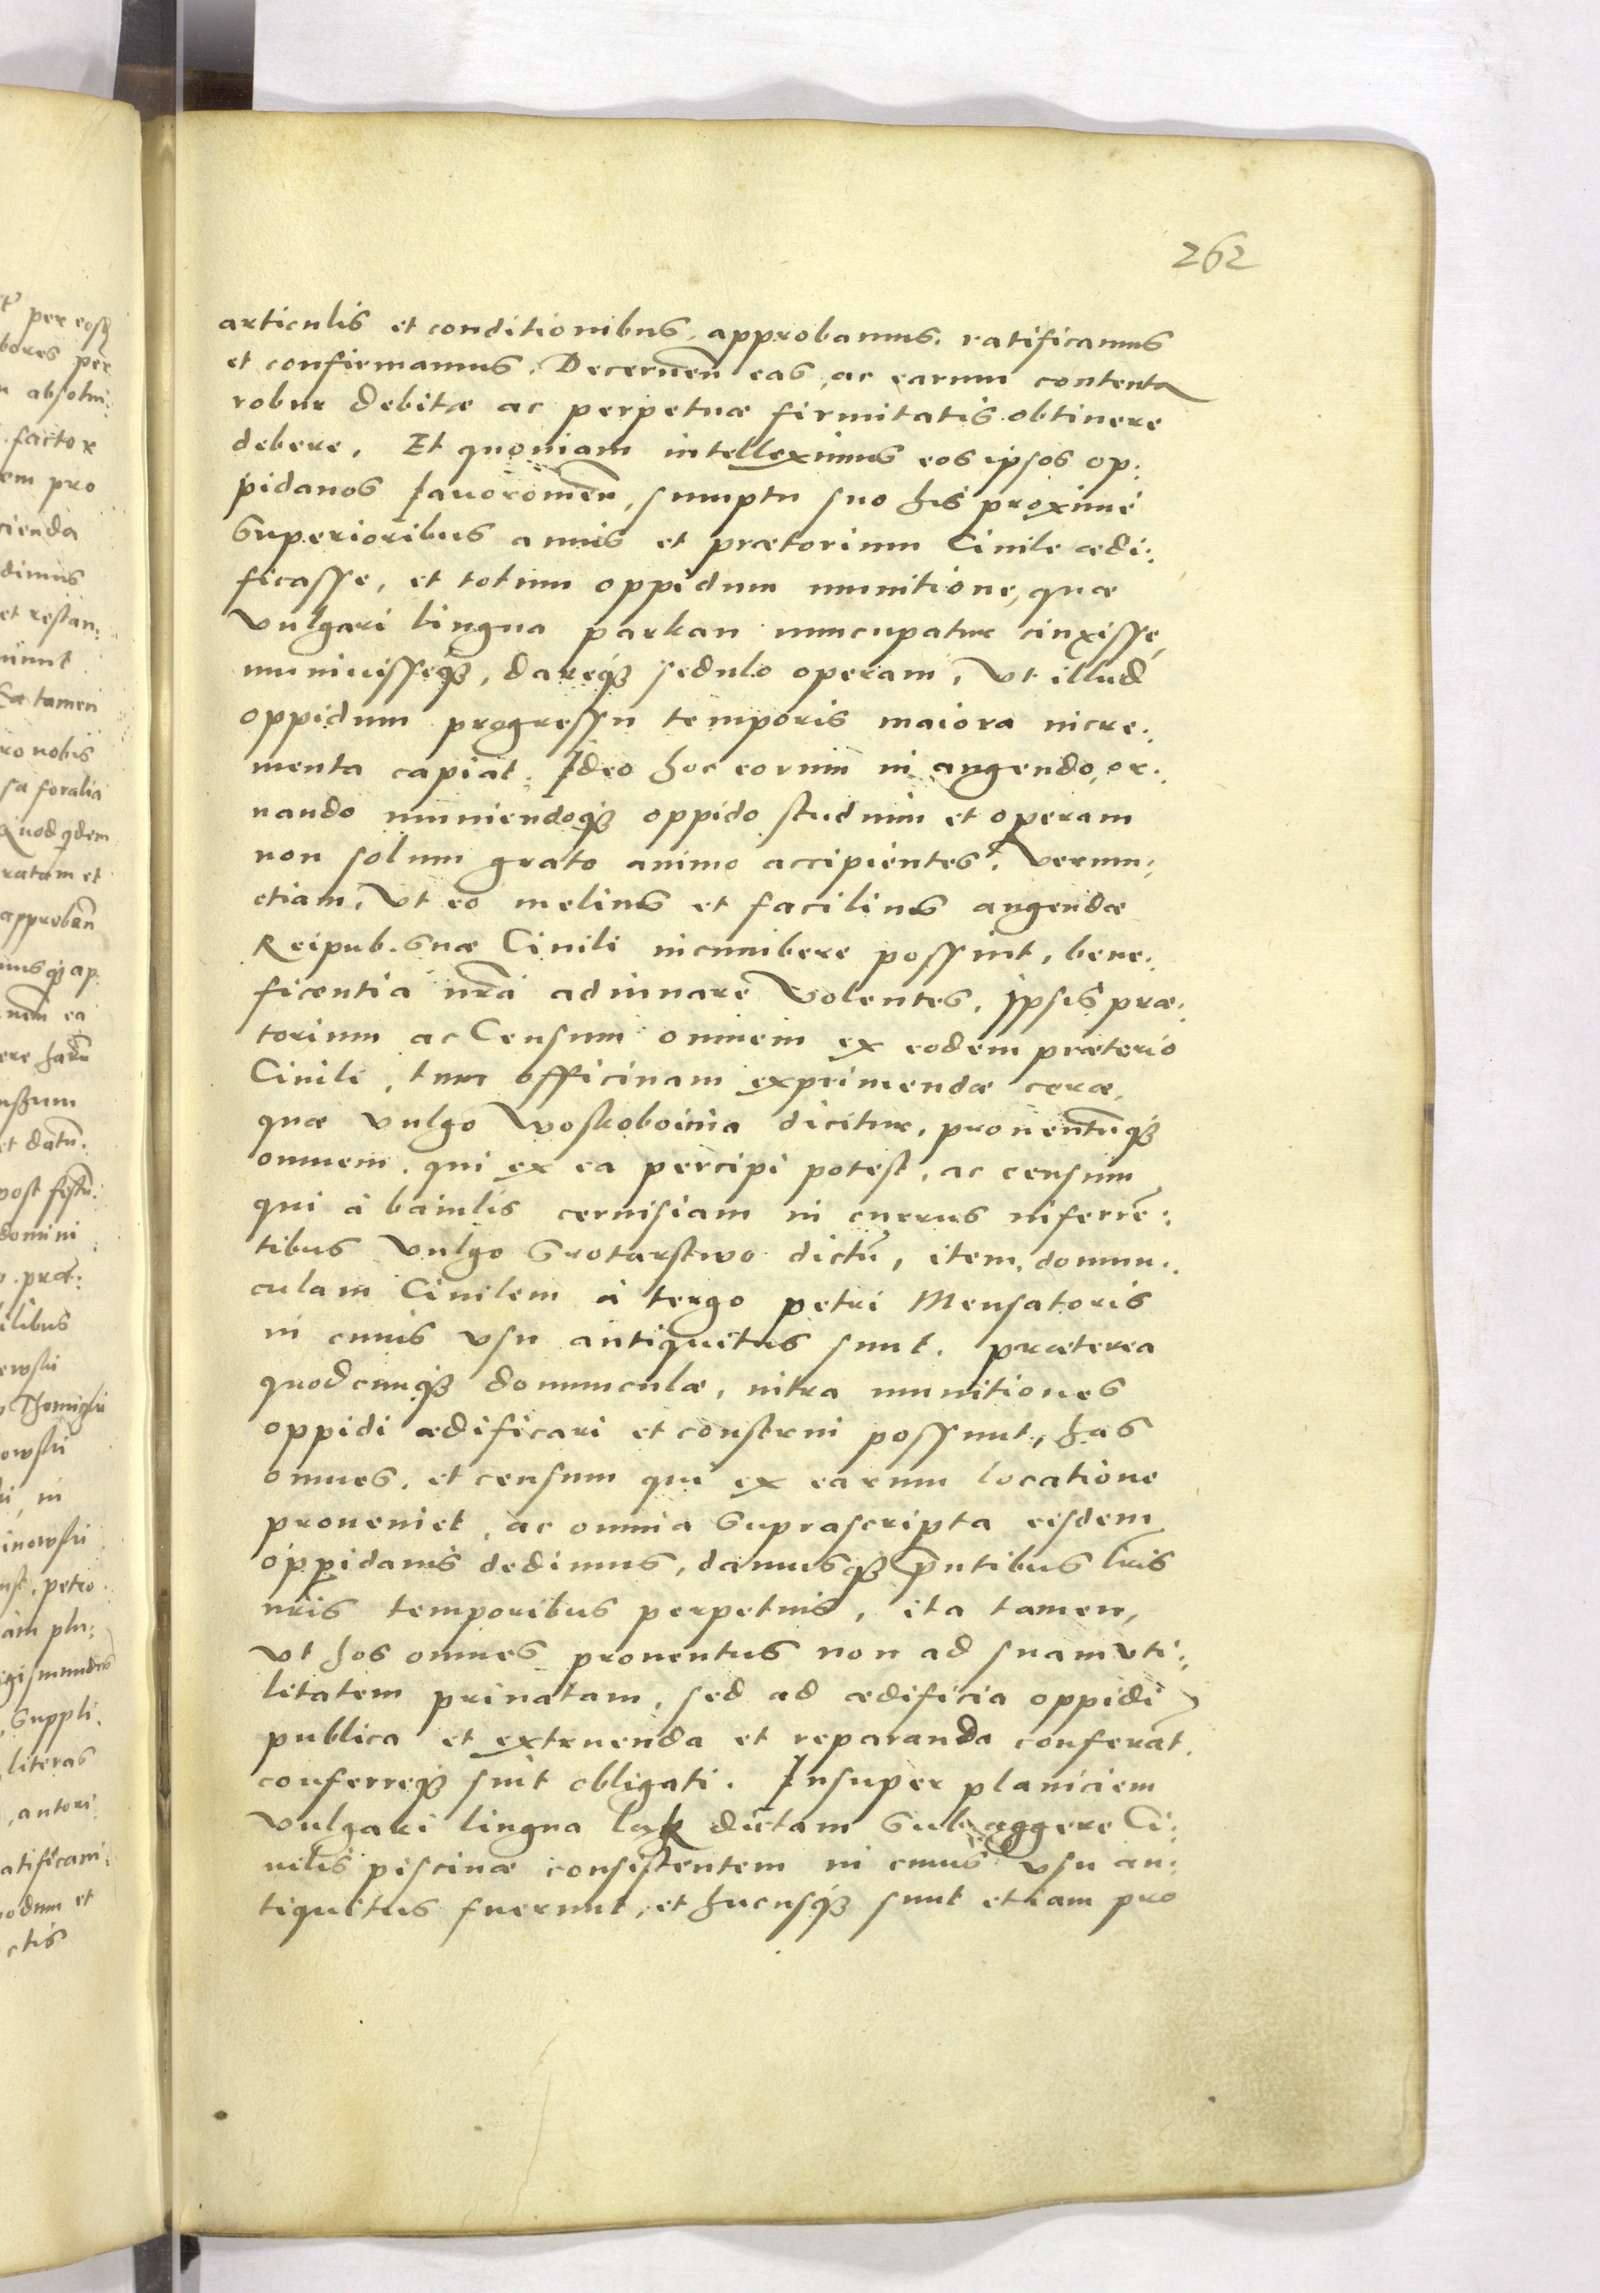 262
articulis et conditionibus, approbamus, ratificamus
et confirmamus. Decernen̄ eas, ac earum contenta
robur debitæ ac perpetuæ firmitatis obtinere
debere. Et quoniam intelleximus eos ipsos op:
pidanos Iauoromen̄, sumptu suo his proximè
superioribus annis et prætorium Ciuile ædi:
ficasse, et totum oppidum munitione, quæ
Vulgari lingua parkan nuncupatur cinxisse,
muniuisseq3, dareq3 sedulo operam, Vt illud
oppidum progressu temporis maiora incre:
menta capiat. Ideo hoc eorum in augendo, or:
nando muniendoq3 oppido studium et operam
non solum grato animo accipientes, Verum:
etiam, Vt eo melius et facilius augendæ
Reipub. suæ Ciuili incumbere possint, bene:
ficentia nr̄a adiuuare Volentes, Ipsis præ:
torium ac Censum omnem ex eodem prætorio
Ciuili, tum officinam exprimendæ ceræ,
quæ Vulgo Woskoboinia dicitur, prouentūq3
omnem, qui ex ea percipi potest, ac censum
qui à baiulis ceruisiam in currus inferrē:
tibus Vulgo Srotarstwo dictū, item, domun:
culam Ciuilem à tergo petri Mensatoris
in cuius Vsu antiquitus sunt. præterea
quodcunq3 domunculæ, intra munitiones
oppidi ædificari et construi possunt, has
omnes, et censum qui ex earum locatione
proueniet, ac omnia suprascripta eisdem
oppidanis dedimus, damusq3 pn̄tibus lr̄is
nr̄is temporibus perpetuis, ita tamen,
Vt hos omnes prouentus non ad suam Vti:
litatem priuatam, sed ad ædificia oppidi
publica et extruenda et reparanda conferāt,
conferreq3 sint obligati. Insuper planiciem
Vulgari lingua lag dictam sub aggere Ci:
uilis piscinæ consistentem in cuius Vsu an:
tiquitus fuerunt, et hucusq3 sunt etiam pro